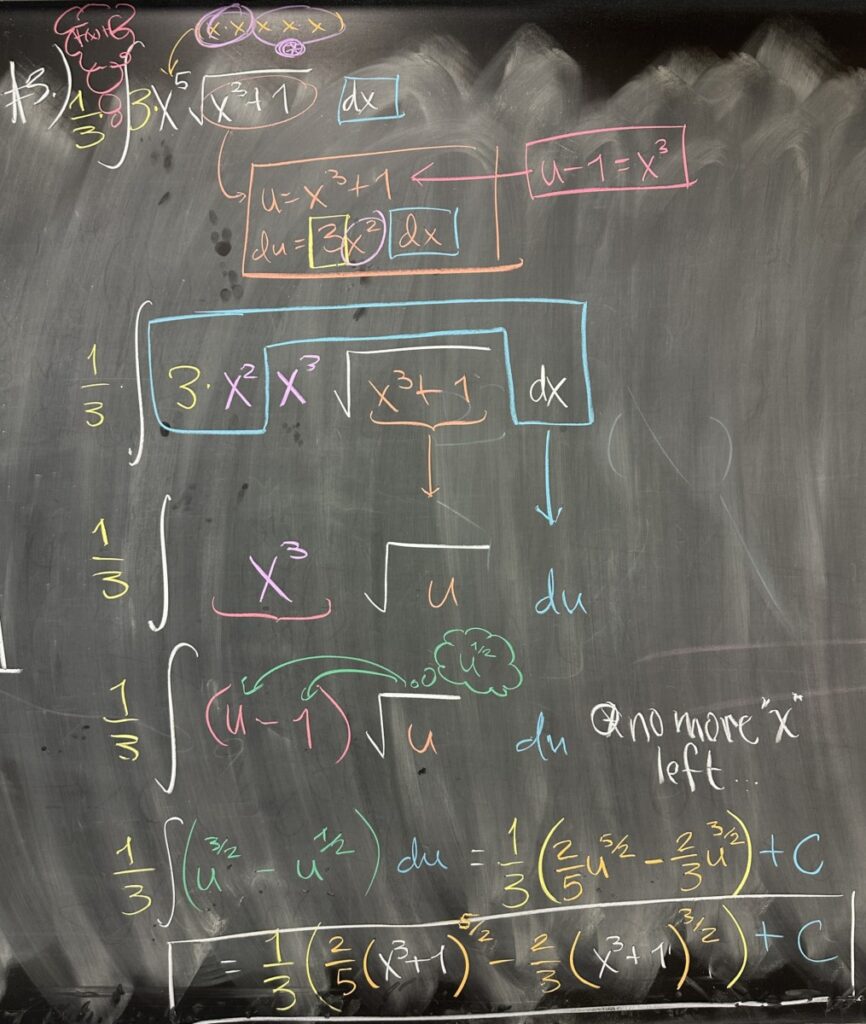 x·x x x x
x³
F(x)+C
#3.) 1/3 · ∫ 3·x⁵ √(x³+1) dx
u = x³+1 ← u-1 = x³
du = 3x² dx
1/3 · ∫ 3·x² x³ √(x³+1) dx
1/3 ∫ x³ √u du
u^(1/2)
1/3 ∫ (u-1) √u du no more "x"
left...
1/3 ∫ (u^(3/2) - u^(1/2)) du = 1/3 (2/5 u^(5/2) - 2/3 u^(3/2)) + C
= 1/3 (2/5 (x³+1)^(5/2) - 2/3 (x³+1)^(3/2)) + C